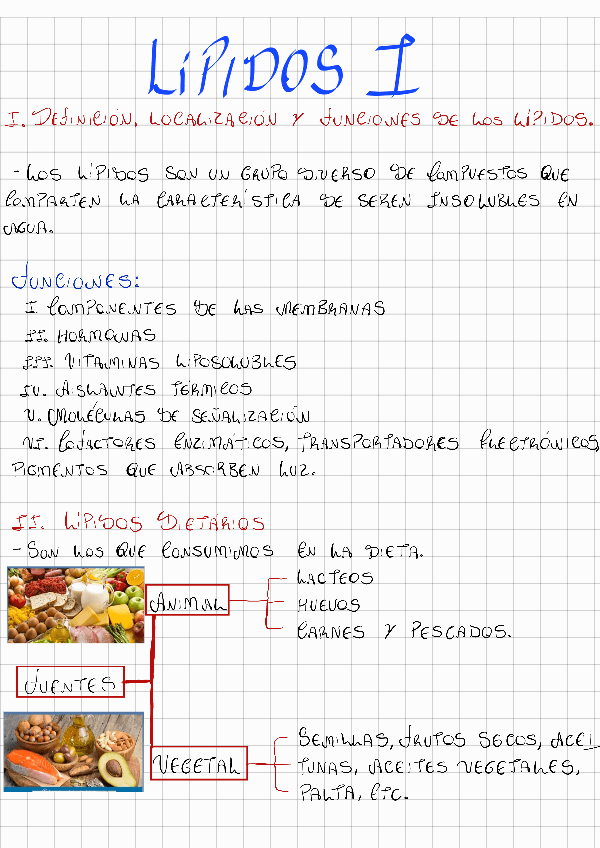 LÍPIDOS I
I. DEFINICIÓN, LOCALIZACIÓN Y FUNCIONES DE LOS LÍPIDOS.
- LOS LÍPIDOS SON UN GRUPO DIVERSO DE COMPUESTOS QUE
COMPARTEN LA CARACTERÍSTICA DE SEREN INSOLUBLES EN
AGUA.
FUNCIONES:
I COMPONENTES DE LAS MEMBRANAS
II. HORMONAS
III. VITAMINAS LIPOSOLUBLES
IV. AISLANTES TÉRMICOS
V. MOLÉCULAS DE SEÑALIZACIÓN
VI. COFACTORES ENZIMATICOS, TRANSPORTADORES ELECTRÓNICOS,
PIGMENTOS QUE ABSORBEN LUZ.
II. LÍPIDOS DIETARIOS
- SON LOS QUE CONSUMIMOS EN LA DIETA.
ANIMAL
LACTEOS
HUEVOS
CARNES Y PESCADOS.
FUENTES
VEGETAL
SEMILLAS, FRUTOS SECOS, ACEI
TUNAS, ACEITES VEGETALES,
PALTA, ETC.